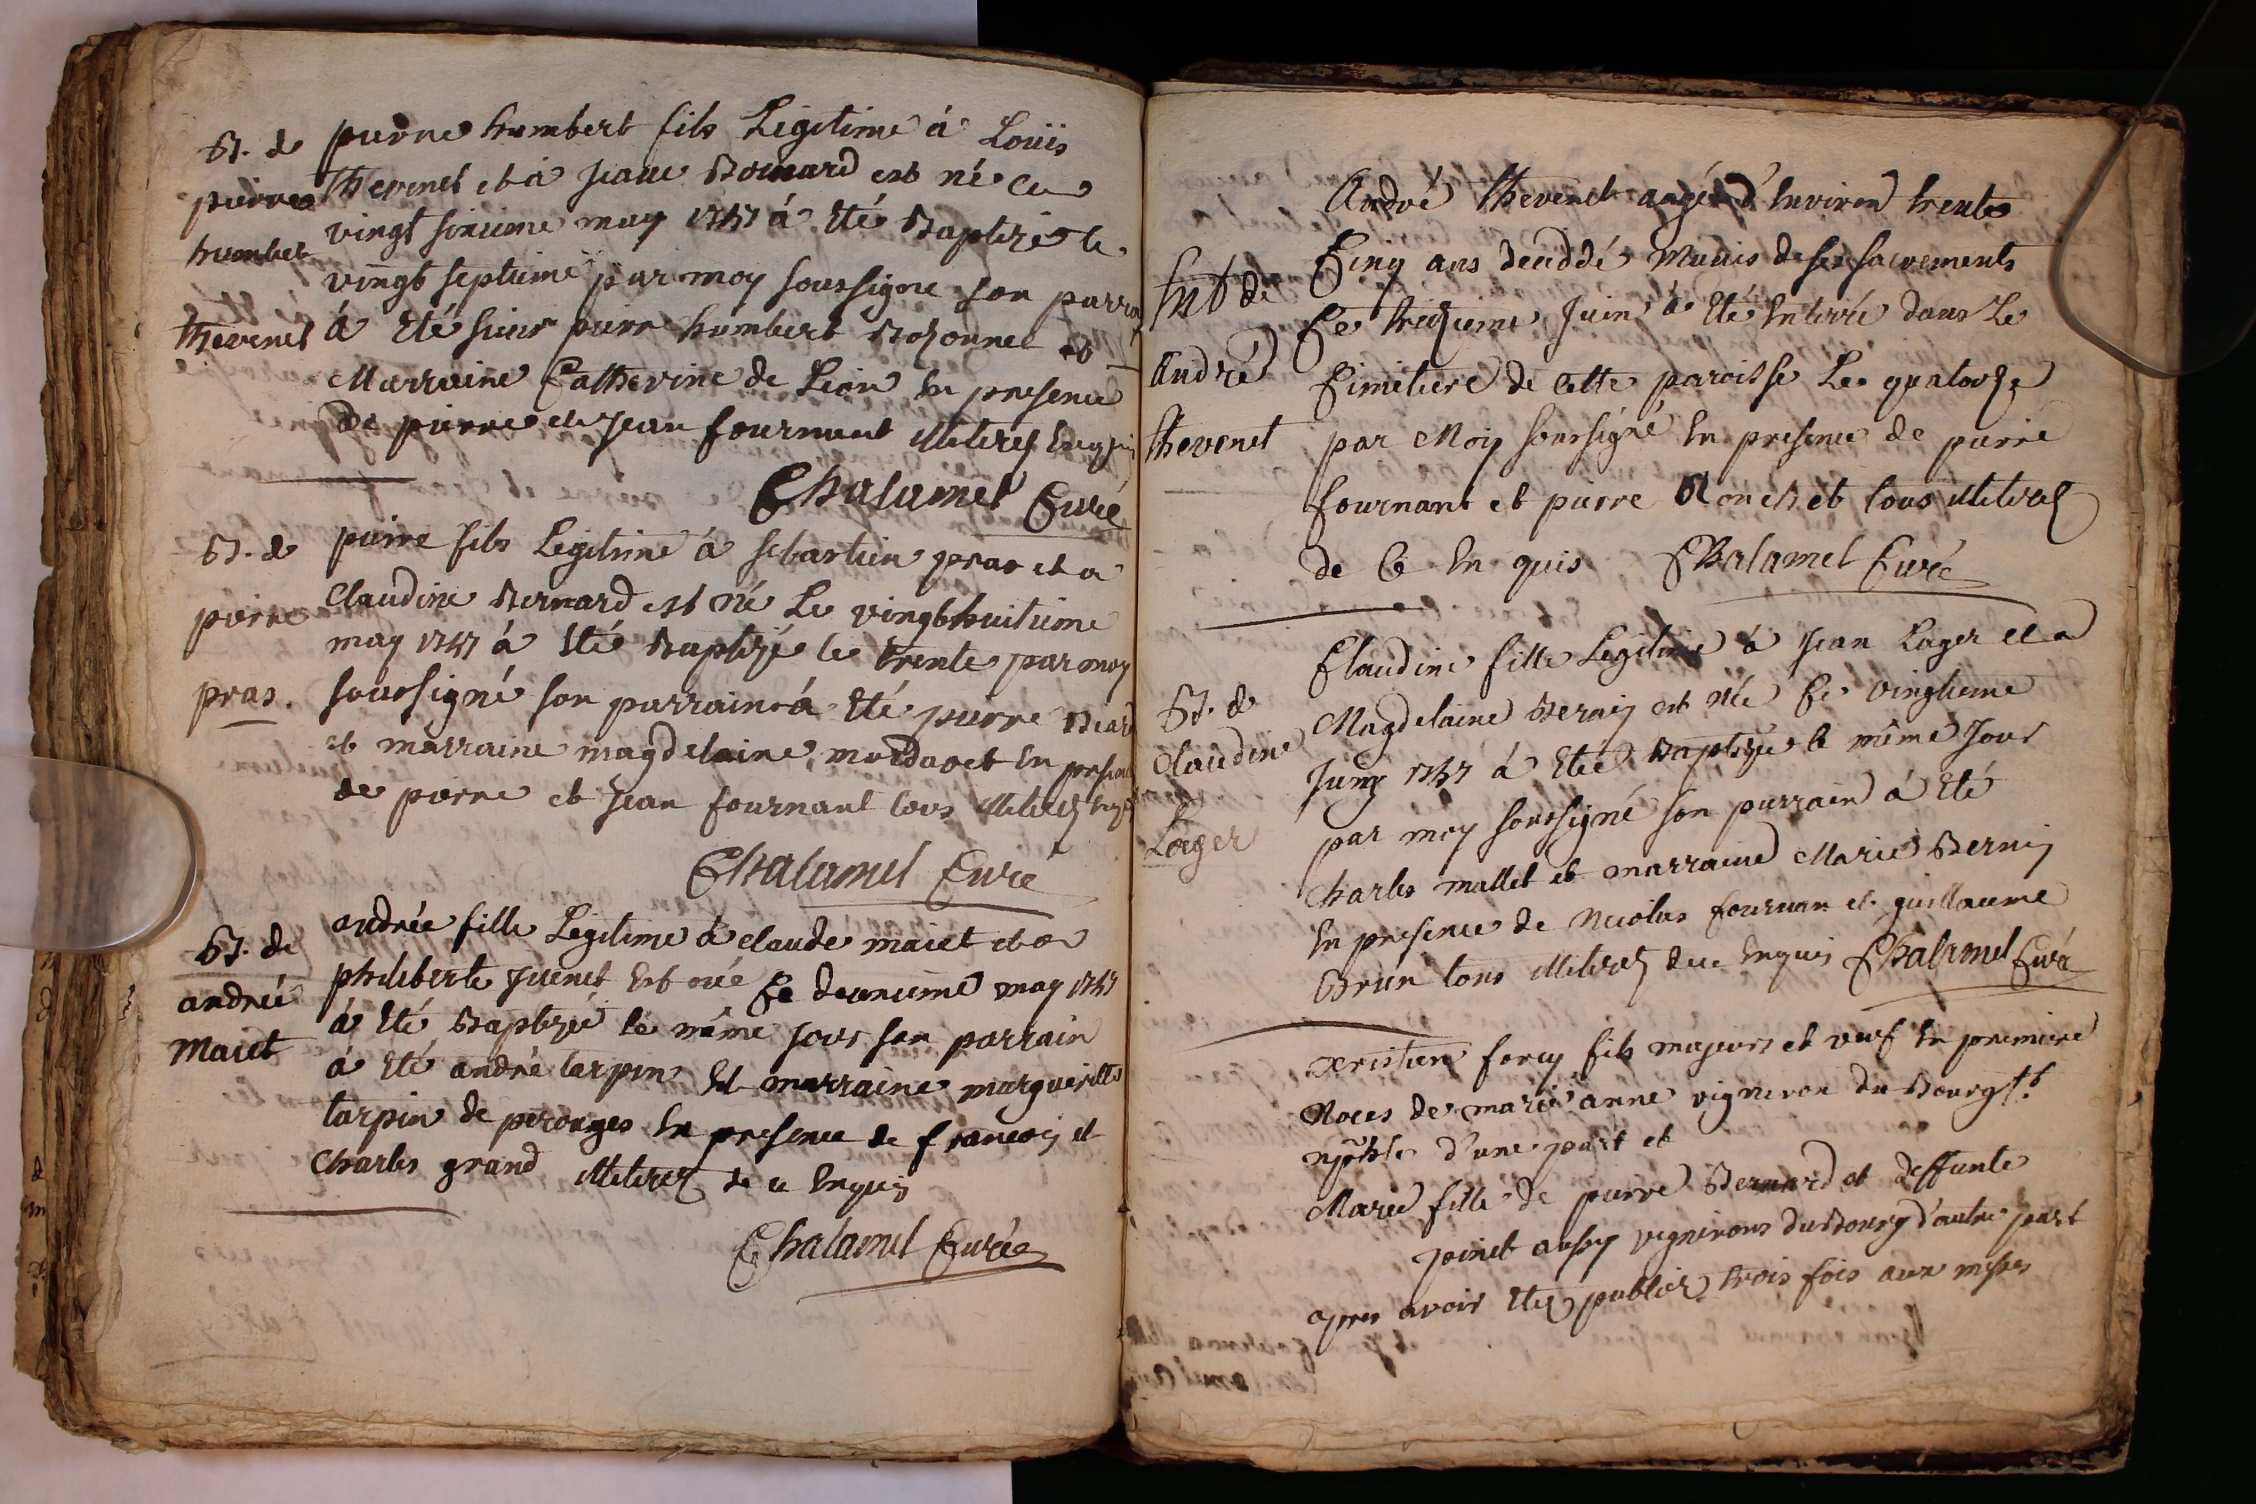 Bt. de
pierre
humbert
thevenet
pierre humbert fils Legitime á Loüis
thevenet et a Jeane Bernard est né ce
vingt sixieme may 1747 á Eté Baptizé le
vingt septieme par moy soussigne son parrain
á Eté sieur pierre humbert Bozonnet et
Marraine Catherine de Leon En presence
de pierre et Jean fournant Illiterez Enquis
Chalamel Curé
Bt. de
pierre
pras.
pierre fils Legitime á sebastien pras et a
Claudine Bernard est né Le vingt huitieme
may 1747 á Eté Baptizé le trente par moy
soussigné son parrain á Eté pierre
et marraine magdelaine En presence
de pierre et Jean fournant tous Illiterez Enquis
Chalamel Curé
Bt. de
andrée
Maiet
andrée fille Legitime á claude maiet et a
philiberte Juenet Est née Ce deuxieme may 1747
á Eté Baptizée le même jour son parrain
á Eté andré tarpin Et marraine marguerite
tarpin de perouges En presence de francois et
charles grand Illiterez de ce Enquis
Chalamel Curé
Ent de
André
thevenet
André thevenet aagé d'Environ trente
Cinq ans decéddé Munis de ses sacrements
Ce treizieme Juin á Eté Enterré dans Le
Cimetiere de Cette paroisse Le quatorze
par Moy soussigné En presence de pierre
fournant et pierre Ronchet tous Illiterez
de Ce En quis Chalamel Curé
Bt. de
Claudine
Lager
Claudine fille Legitime á Jean Lager et a
Magdelaine Bernin est née Ce vingtieme
Juin 1747 á Eteé Baptizée le même Jour
par moy soussigné son parrain á Eté
Charles mallet et marraine Marie Bernin
En presence de Nicolas fournan et guillaume
Brun tous Illiterez de ce Enquis Chalamel Curé
xristien forey fils majeurs et veuf En premiere
Noces de marie anne vigneron du Bourg st.
d'une part et
Marie fille de pierre Bernard et deffunte
joinet aussy vignerons du Bourg d'autre part
apres avoir Etez publiez trois fois aux messes